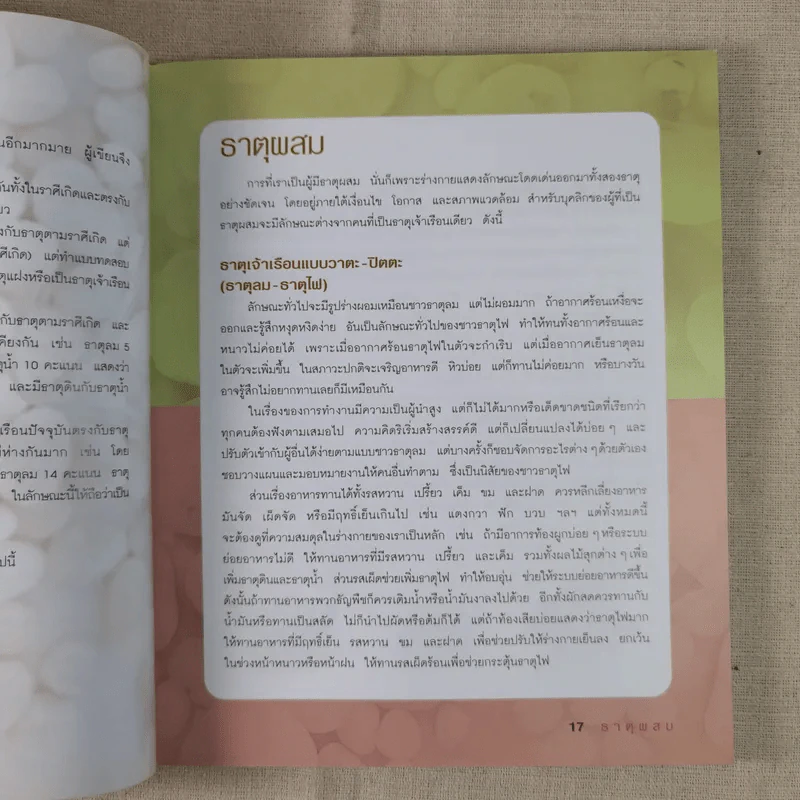 นอีกมากมาย ผู้เขียนจึง
กันทั้งในราศีเกิดและตรงกับ
ยว
งกับธาตุตามราศีเกิด แต่
ศีเกิด) แต่ทำแบบทดสอบ
ตุแฝงหรือเป็นธาตุเจ้าเรือน
กับธาตุตามราศีเกิด และ
คียงกัน เช่น ธาตุลม 5
ตุน้ำ 10 คะแนน แสดงว่า
และมีธาตุดินกับธาตุน้ำ
เรือนปัจจุบันตรงกับธาตุ
ม่ห่างกันมาก เช่น โดย
ธาตุลม 14 คะแนน ธาตุ
ในลักษณะนี้ให้ถือว่าเป็น
ปนี้
ธาตุผสม
การที่เราเป็นผู้มีธาตุผสม นั่นก็เพราะร่างกายแสดงลักษณะโดดเด่นออกมาทั้งสองธาตุ
อย่างชัดเจน โดยอยู่ภายใต้เงื่อนไข โอกาส และสภาพแวดล้อม สำหรับบุคลิกของผู้ที่เป็น
ธาตุผสมจะมีลักษณะต่างจากคนที่เป็นธาตุเจ้าเรือนเดียว ดังนี้
ธาตุเจ้าเรือนแบบวาตะ-ปิตตะ
(ธาตุลม-ธาตุไฟ)
ลักษณะทั่วไปจะมีรูปร่างผอมเหมือนชาวธาตุลม แต่ไม่ผอมมาก ถ้าอากาศร้อนเหงื่อจะ
ออกและรู้สึกหงุดหงิดง่าย อันเป็นลักษณะทั่วไปของชาวธาตุไฟ ทำให้ทนทั้งอากาศร้อนและ
หนาวไม่ค่อยได้ เพราะเมื่ออากาศร้อนธาตุไฟในตัวจะกำเริบ แต่เมื่ออากาศเย็นธาตุลม
ในตัวจะเพิ่มขึ้น ในสภาวะปกติจะเจริญอาหารดี หิวบ่อย แต่ก็ทานไม่ค่อยมาก หรือบางวัน
อาจรู้สึกไม่อยากทานเลยก็มีเหมือนกัน
ในเรื่องของการทำงานมีความเป็นผู้นำสูง แต่ก็ไม่ได้มากหรือเด็ดขาดชนิดที่เรียกว่า
ทุกคนต้องฟังตามเสมอไป ความคิดริเริ่มสร้างสรรค์ดี แต่ก็เปลี่ยนแปลงได้บ่อย ๆ และ
ปรับตัวเข้ากับผู้อื่นได้ง่ายตามแบบชาวธาตุลม แต่บางครั้งก็ชอบจัดการอะไรต่าง ๆ ด้วยตัวเอง
ชอบวางแผนและมอบหมายงานให้คนอื่นทำตาม ซึ่งเป็นนิสัยของชาวธาตุไฟ
ส่วนเรื่องอาหารทานได้ทั้งรสหวาน เปรี้ยว เค็ม ขม และฝาด ควรหลีกเลี่ยงอาหาร
มันจัด เผ็ดจัด หรือมีฤทธิ์เย็นเกินไป เช่น แตงกวา ฟัก บวบ ฯลฯ แต่ทั้งหมดนี้
จะต้องดูที่ความสมดุลในร่างกายของเราเป็นหลัก เช่น ถ้ามีอาการท้องผูกบ่อย ๆ หรือระบบ
ย่อยอาหารไม่ดี ให้ทานอาหารที่มีรสหวาน เปรี้ยว และเค็ม รวมทั้งผลไม้สุกต่าง ๆ เพื่อ
เพิ่มธาตุดินและธาตุน้ำ ส่วนรสเผ็ดช่วยเพิ่มธาตุไฟ ทำให้อบอุ่น ช่วยให้ระบบย่อยอาหารดีขึ้น
ดังนั้นถ้าทานอาหารพวกธัญพืชก็ควรเติมน้ำหรือน้ำมันงาลงไปด้วย อีกทั้งผักสดควรทานกับ
น้ำมันหรือทานเป็นสลัด ไม่ก็นำไปผัดหรือต้มก็ได้ แต่ถ้าท้องเสียบ่อยแสดงว่าธาตุไฟมาก
ให้ทานอาหารที่มีฤทธิ์เย็น รสหวาน ขม และฝาด เพื่อช่วยปรับให้ร่างกายเย็นลง ยกเว้น
ในช่วงหน้าหนาวหรือหน้าฝน ให้ทานรสเผ็ดร้อนเพื่อช่วยกระตุ้นธาตุไฟ
17 ธาตุผสม